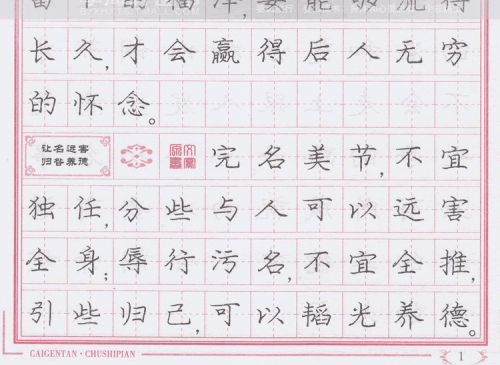 的福泽,要能够流得
长久,才会赢得后人无穷
的怀念。
让名远害
归咎养德
完名美节,不宜
独任,分些与人可以远害
全身;辱行污名,不宜全推,
引些归己,可以韬光养德。
CAIGENTAN·CHUSHIPIAN
1